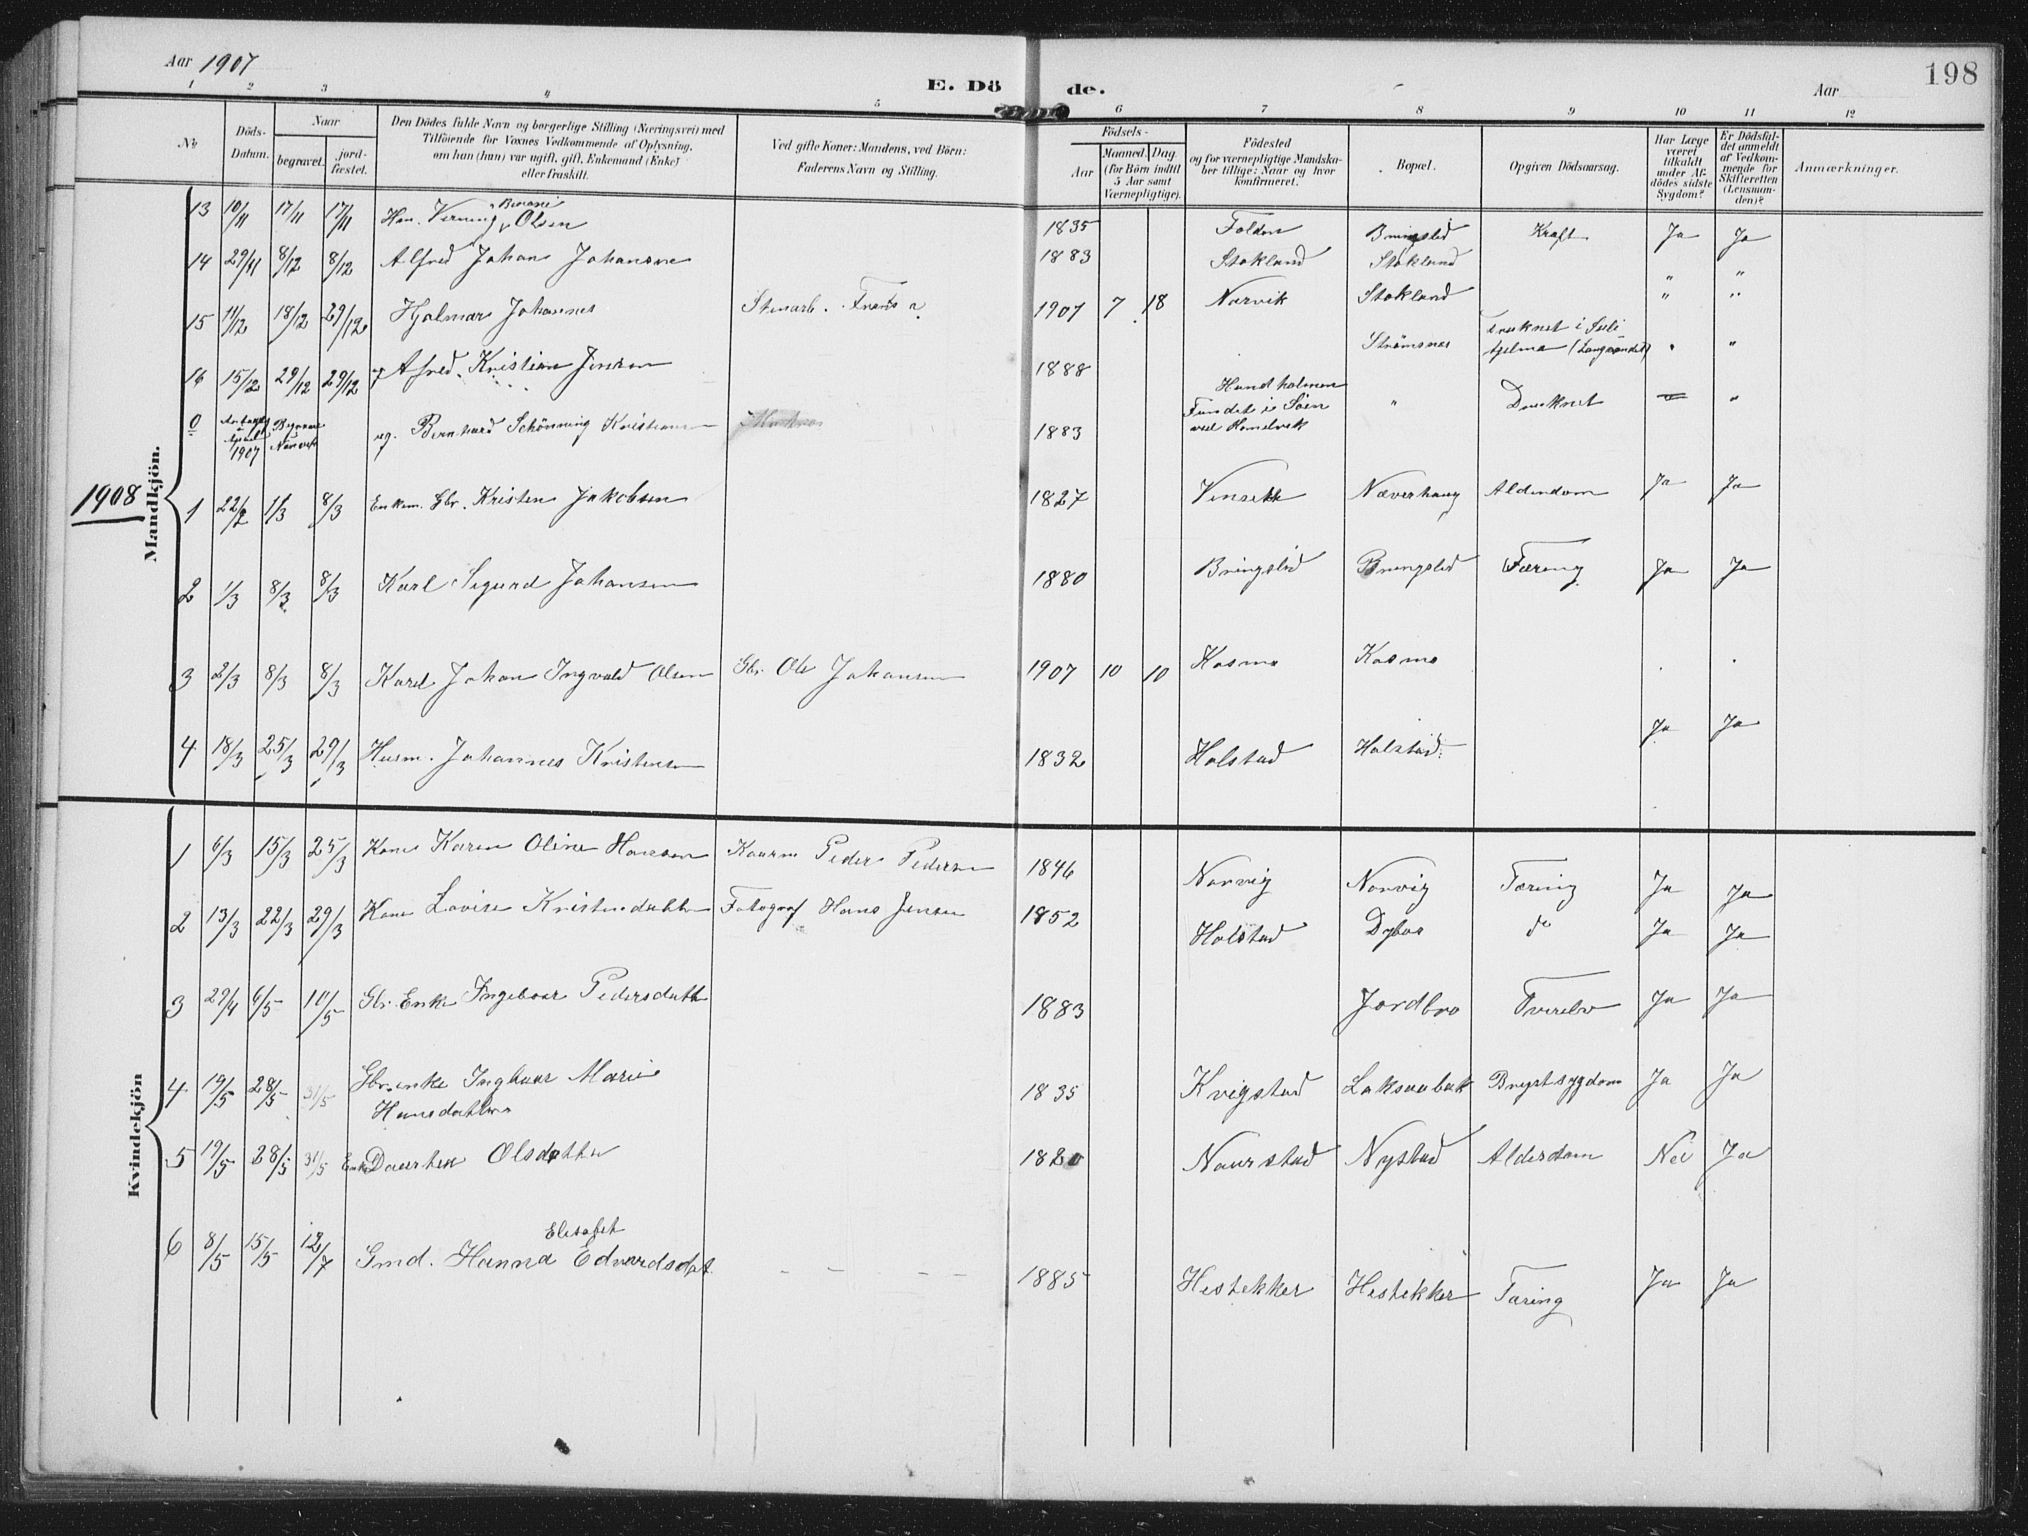 Aar 1907
E. Dö de.
Aar
198
1 2 3 4 5 6 7 8 9 10 11 12
No
Döds-Datum.
Naar
begravet.
jord-fæstet.
Den Dödes fulde Navn og borgerlige Stilling (Næringsvei) med
Tilföiende for Voxnes Vedkommende af Oplysning,
om han (hun) var ugift, gift, Enkemand (Enke)
eller fraskilt.
Ved gifte Koner: Mandens, ved Börn:
Faderens Navn og Stilling.
Födsels-
Aar
Maaned. Dag
(for Börn indtil
5 Aar samt
Værnepligtige).
Födested
og for værnepligtige Mandska-
ber tillige: Naar og hvor
konfirmeret.
Bopæl.
Opgiven Dödsaarsag.
Har Læge
været
tilkaldt
under Af-
dödes sidste
Sygdom?
Er Dödsfal-
det anmeldt
af Vedkom-
mende for
Skifteretten
(Lensman-
den)?
Anmærkninger.
Mandkjön.
13 10/11 17/11 17/11 Olsen 1835 Folden Bringslid Kraft Ja Ja
14 29/11 8/12 8/12 Alfred Johan Johansen 1883 Stokland Stokland " "
15 11/12 18/12 29/12 Hjalmar Johannes Stenarb. Frants 1907 7 18 Narvik Stokland " "
16 15/12 29/12 29/12 Alfred Kristian Jensen 1888 Strömsnes Druknet i Suli
tjelma (Langvandet) "
0 1907 Begravet Narvik ug. Bernhard Schönning Kristiansen 1883 Hundholmen
Fundet i Söen
ved " Druknet "
1908
1 22/2 1/3 8/3 Enkem. Gbr. Kristen Jakobsen 1827 Næverhaug Alderdom Ja Ja
2 1/3 8/3 8/3 Karl Sigurd Johansen 1880 Bringslid Bringslid Tæring Ja Ja
3 2/3 8/3 8/3 Karl Johan Ingvald Olsen Gbr. Ole Johansen 1907 10 10 Kosmo Kosmo
4 18/3 25/3 29/3 Husm. Johannes Kristensen 1832 Holstad Holstad Ja Ja
Kvindekjön
1 6/3 15/3 25/3 Kone Karen Oline Hansen Kaarm Peder Pedersen 1846 Norvig Norvig Tæring Ja Ja
2 13/3 22/3 29/3 Kone Lovise Kristensdatter Fotograf Hans Jensen 1852 Holstad do Ja Ja
3 29/4 6/5 10/5 Gbr. Enke Ingeboar Pedersdatt 1883 Jordbro Ja Ja
4 19/5 28/5 31/5 Gbr. enke Ingboar Marie
Hansdatter 1835 Kvigstad Laksaabak Brystsygdom Ja Ja
5 19/5 28/5 31/5 Enke Daarten Olsdatter 1820 Naurstad Nystad Alderdom Nei Ja
Elisabet
6 8/5 15/5 12/7 Gmd. Hanna Edvardsdat 1885 Hestekker Hestekker Tæring Ja Ja